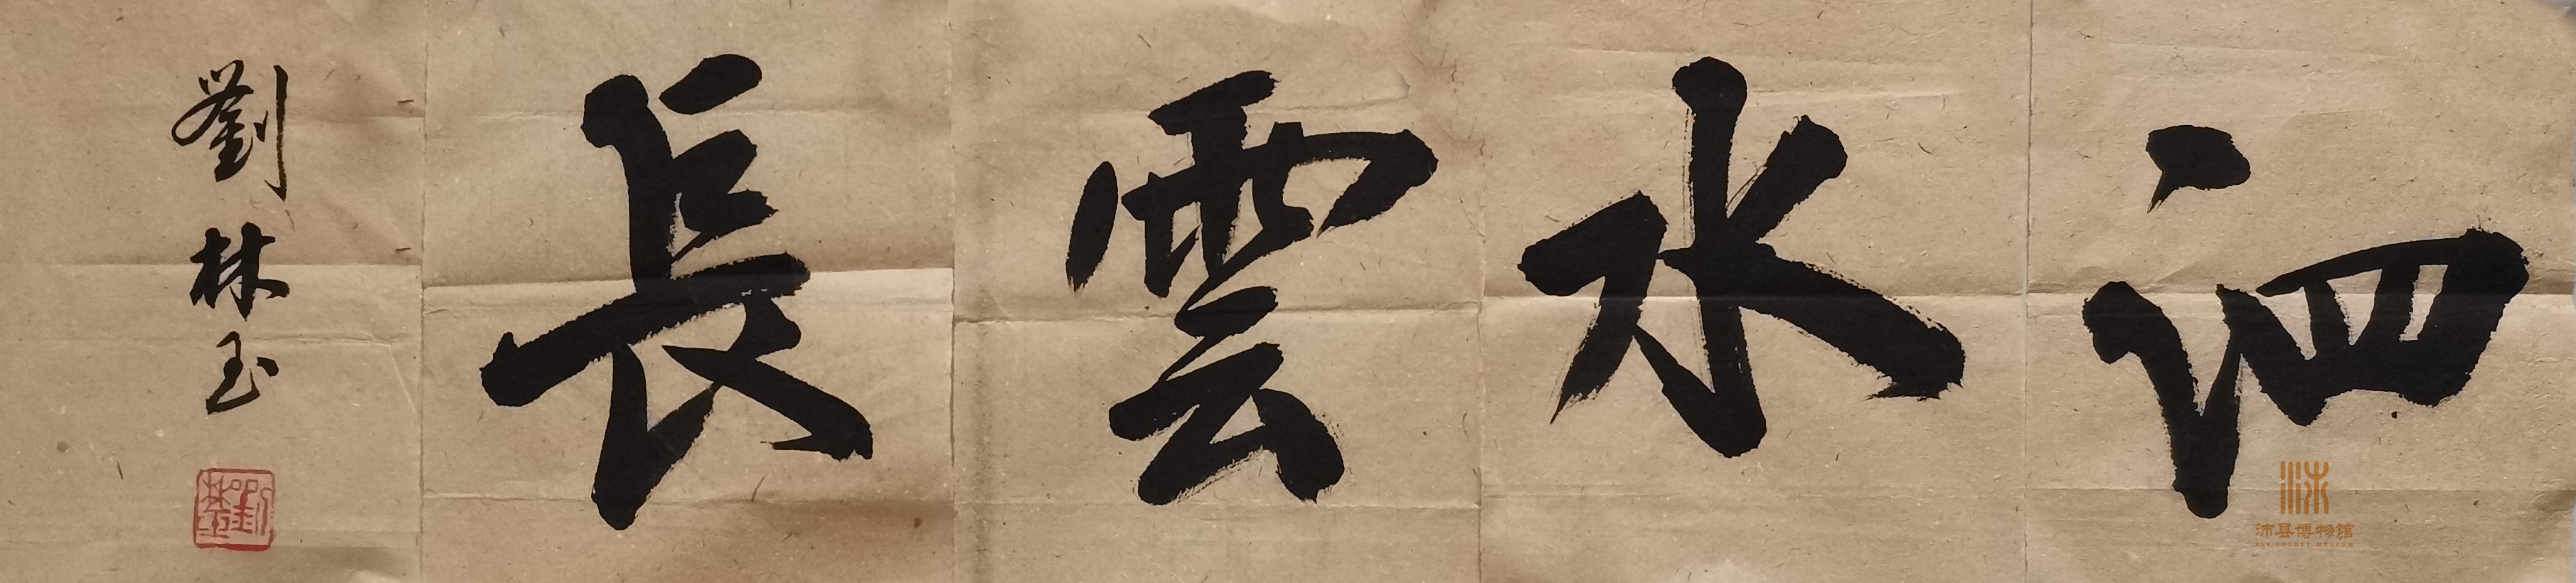 泗水雲長
劉林玉
劉林玉
沛县博物館
PEI COUNTY MUSEUM